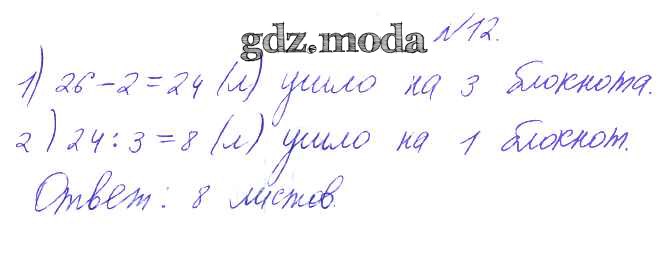 №12.
gdz.moda
1) 26-2=24 (л) ушло на 3 блокнота.
2) 24:3=8 (л) ушло на 1 блокнот.
Ответ: 8 листов.